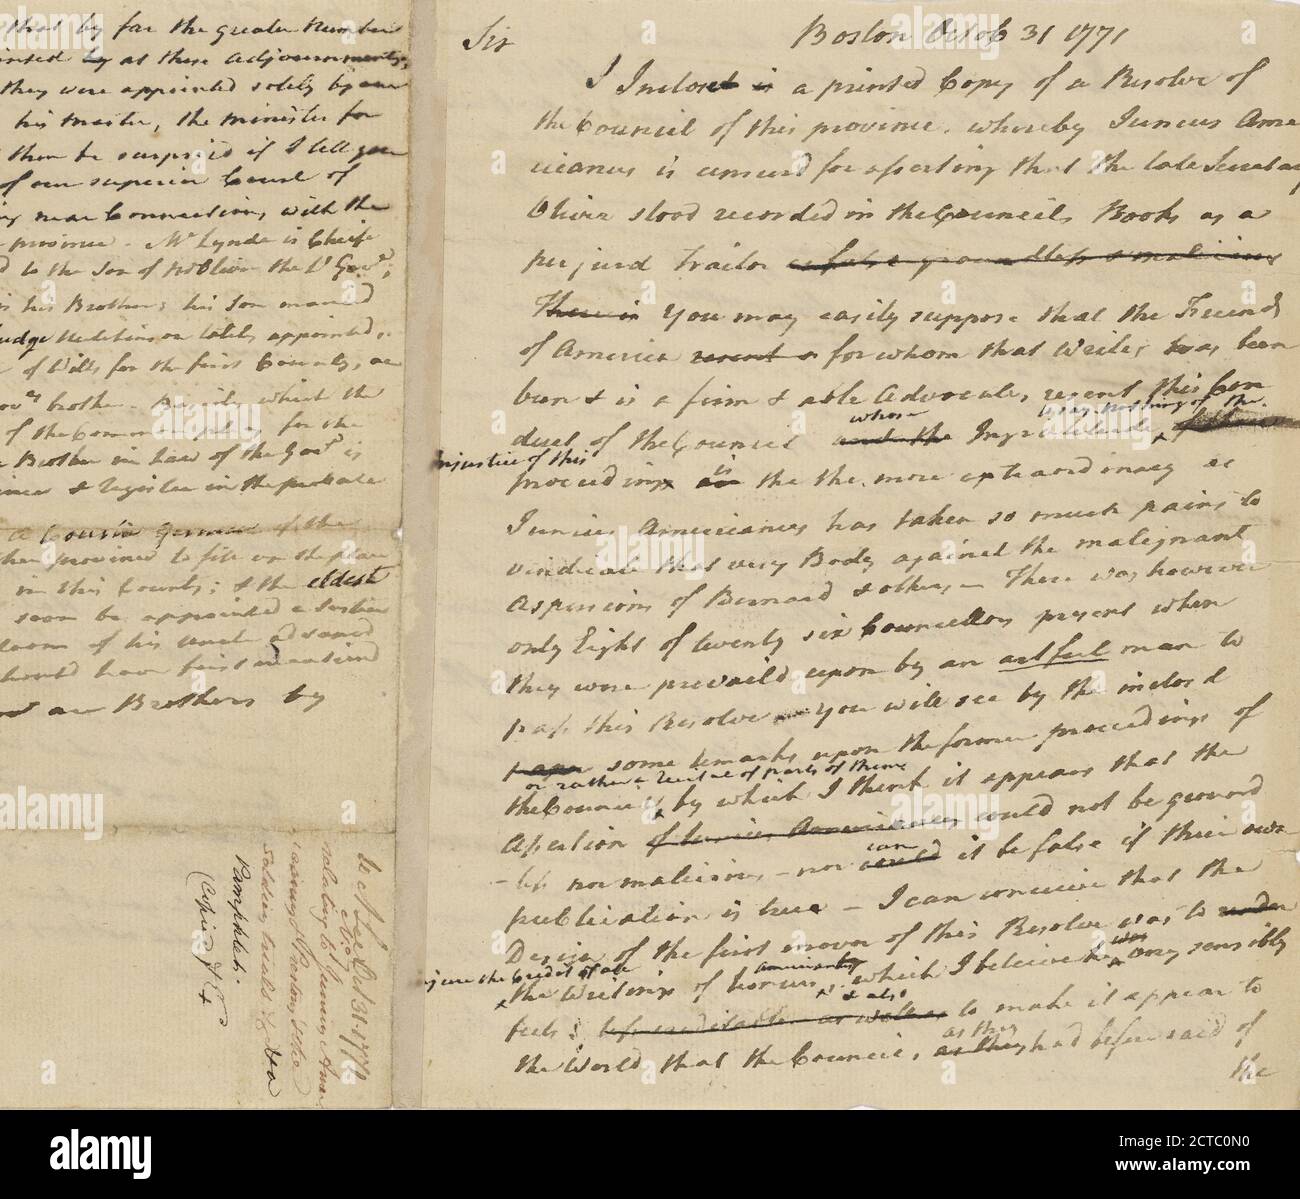 that by far the greater Number
at these Adjournments,
they were appointed solely by our
his Master, the Minister for
then be surprisd if I tell you
of our superior Court of
near Connections, with the
province. Mr Lynde is Cheife
to the Son of Mr Oliver the Lt Govr;
is his Brother; his Son married
Judge Hutchinson lately appointed
of Wills for the first County, a
brother. Besides which the
of the Common pleas for the
Brother in Law of the Govr is
& Register in the probate
a Cousin German of the
province to fill up the place
in this County; & the eldest
soon be appointed a Justice
room of his uncle advancd
should have first mentiond
are Brothers by
to A Lee Oct 31 1771
relating to Junius Ame
&c
casinus, Preston, & the
Soldiers trials & Tea
Pamphlet.
(Copied)
Sir
Boston Octob 31 1771
I Inclose is a printed Copy of a Resolve of
the Council of this province, whereby Junius Ame
ricanus is censurd for asserting that the late Secretary
Oliver stood recorded in the Councils Books as a
perjurd traitor as false groundless & malicious
There is You may easily suppose that the Friends
of America resent & for whom that Writer has been
been & is a firm & able Advocate, resent this Con
duct of the Council and the Ingratitude
whose
to say nothing of the
injustice of this
proceeding is the the more extraordinary as
is
Junius Americanus has taken so much pains to
vindicate that very Body against the malignant
Aspersions of Bernard & others — There was however
only Eight of twenty six Councellors present when
they were prevaild upon by an artful man to
pass this Resolve — You will see by the inclosd
paper some remarks upon the former proceedings of
or rather a recital of parts of them
the Council, by which I think it appears that the
Assertion of Junius Americanus could not be ground
-less nor malicious — nor could it be false if their own
can
publication is true — I can conceive that the
Design of the first mover of this Resolve was to under
injure the Credit of all
the Writings of Junius which I believe he very sensibly
Americanus
was
& also
feels; less creditable as well as to make it appear to
the World that the Council, as they had before said of
as they
the
alamy
Image ID: 2CTC0N0
www.alamy.com